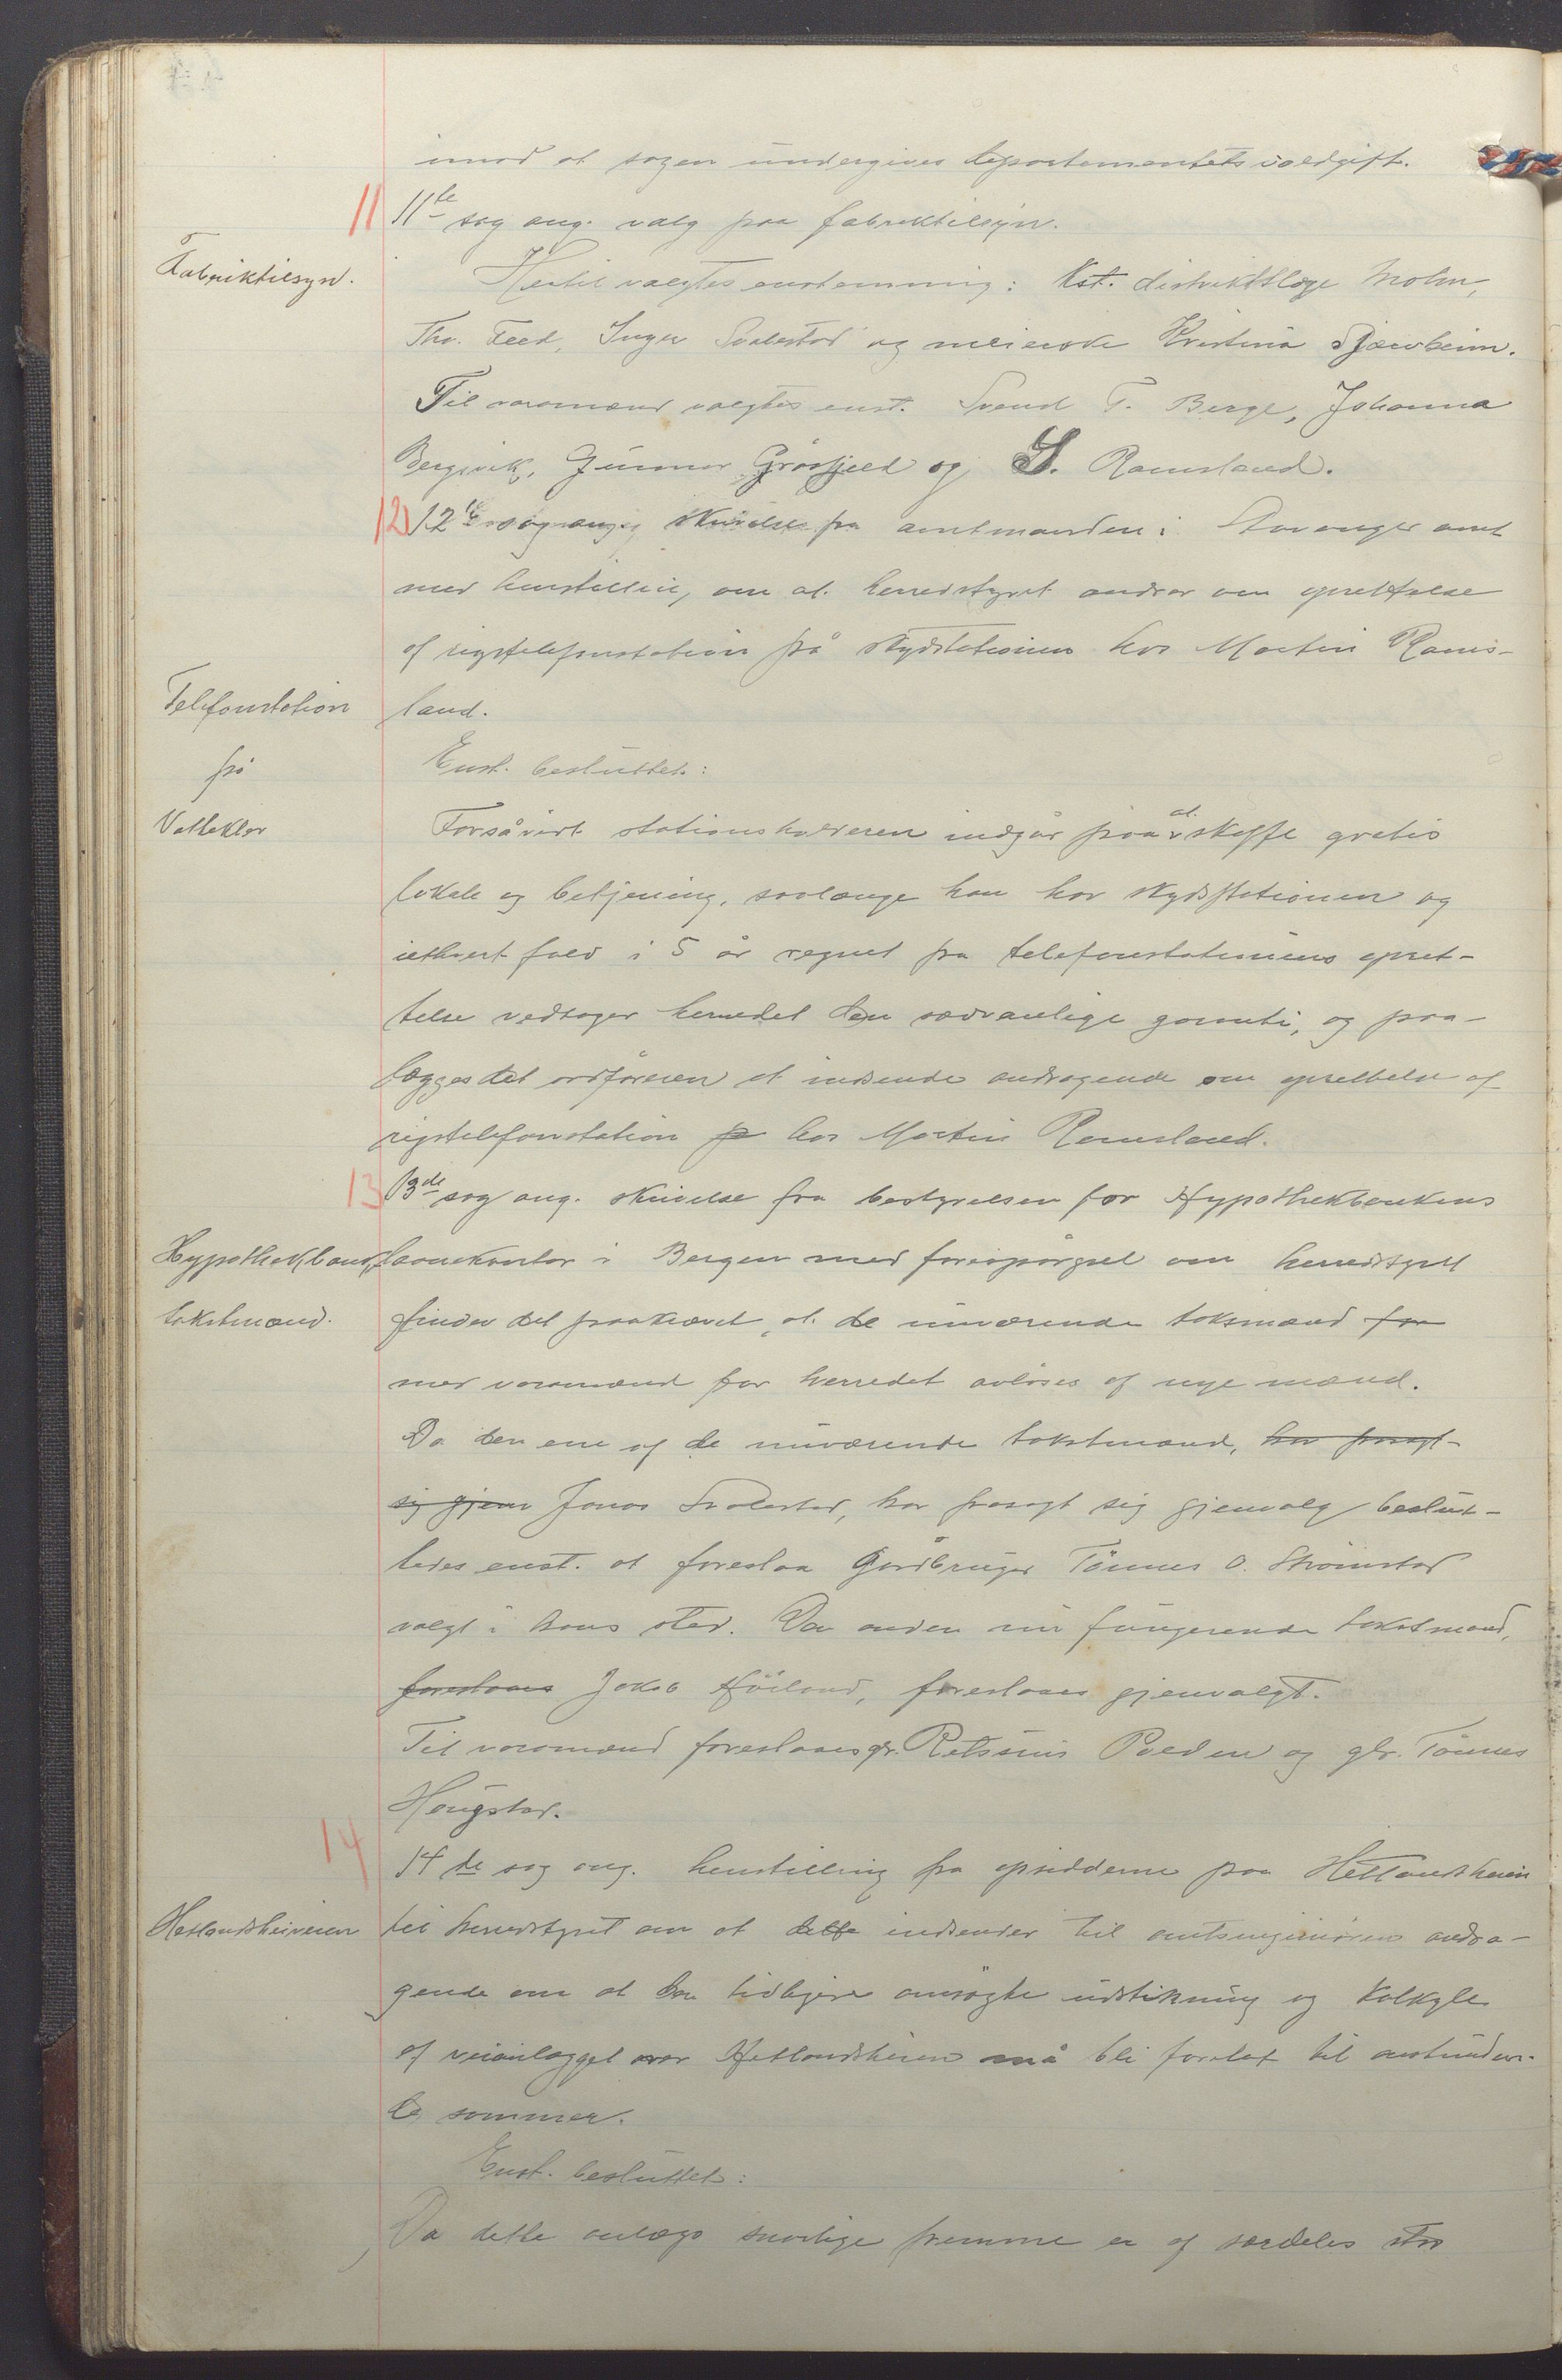 imod at sagen undergives departementets voldgift.
11 11te sag ang. valg paa fabriktilsyn.
Fabriktilsyn.
Hertil valgtes enstemmig: Kst. distriktslæge Holm,
Tho. Feed, Inger Svalestad og meierske Kristina Sjævheim.
Til varamænd valgtes enst. Svend T. Berge, Johanna
Bergevik, Gunnar Grøsfjeld og S. Ramsland.
12 12te sag ang. skrivelse fra amtmanden i Stavanger amt
med henstillin, om at herredstyret andrar om oprettelse
af rigstelefonstation på skydsstationen hos Martin Rams-
Telefonstation
på
Vatteklev
land.
Enst. besluttet:
Forsåvidt stationsholderen indgår paa at skaffe gratis
lokale og betjening, saalænge han har skydsstationen og
iethvert fald i 5 år regnet fra telefonstationens opret-
telse vedtager herredet den sædvanlige garanti, og paa-
lægges det ordføreren at indsende andragende om oprettelse af
rigstelefonstation p hos Martin Ramsland.
13 13de sag ang. skrivelse fra bestyrelsen for Hypothekbankens
Hypothekbank,
takstmænd.
laanekontor i Bergen med forespørgsel om herredstyret
finder det paakrævet, at de nuværende taksmænd for
med varamænd for herredet avløses af nye mænd.
Da den ene af de nuværende takstmænd, har frasagt
sig gjen Jonas Svalestad, har frasagt sig gjenvalg beslut-
tedes enst. at foreslaa Gårdbruger Tönnes O. Strömstad
valgt i hans sted. Den anden nu fungerende takstmand,
foreslaaes Jakob Höiland, foreslaaes gjenvalgt.
Til varamænd foreslaaes gbr. Rasmus Polden og gbr. Tönnes
Haugstad.
14 14de sag ang. henstilling fra opsidderne paa Hetlandsheien
Hetlandsheiveien
til herredstyret om at dette indsender til amtsingeniøren andra-
gende om at den tidligere ansøgte udstikning og kalkyle
af veianlægget over Hetlandsheien må bli foretat til anstunden-
de sommer.
Enst. besluttet:
Da dette anlægs snarlige fremme er af særdeles stor